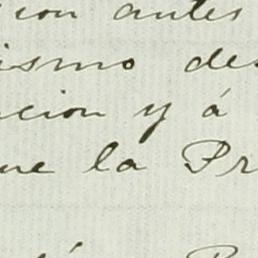 cion antes
ismo des
ncion y á
ue la Pr